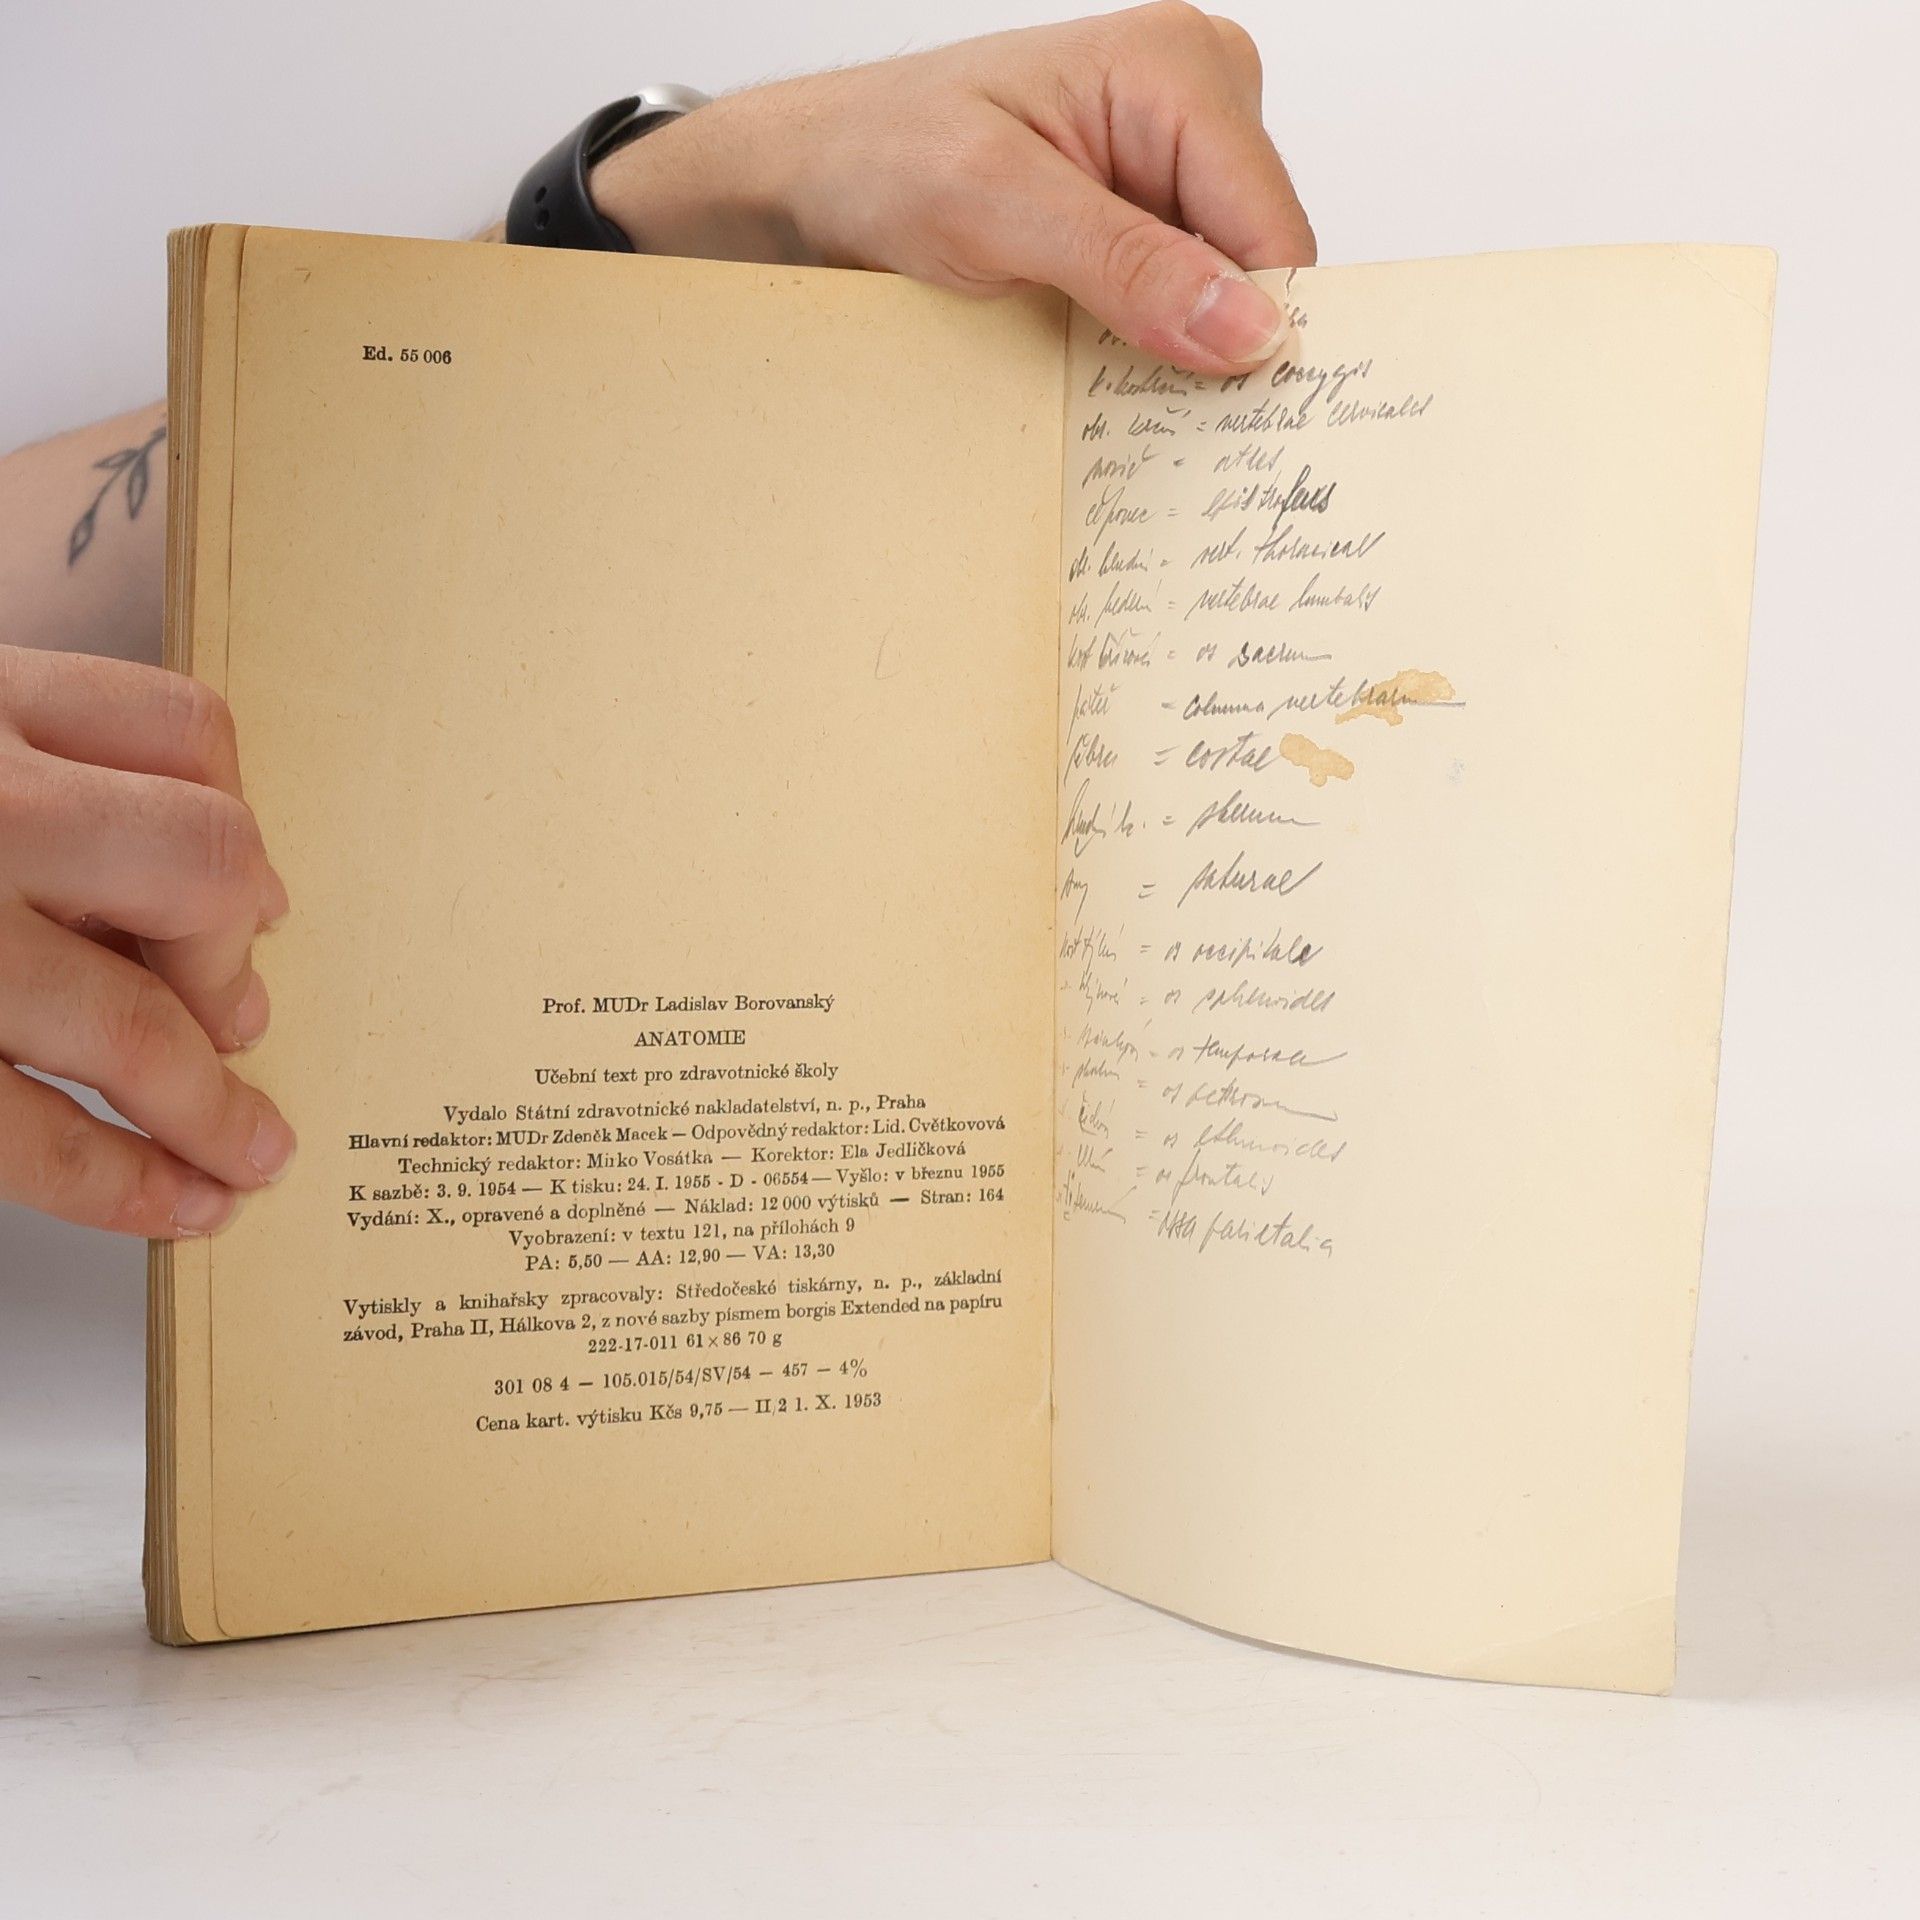 Ed. 55 006
Prof. MUDr Ladislav Borovanský
ANATOMIE
Učební text pro zdravotnické školy
Vydalo Státní zdravotnické nakladatelství, n. p., Praha
Hlavní redaktor: MUDr Zdeněk Macek — Odpovědný redaktor: Lid. Cvětkovová
Technický redaktor: Mirko Vosátka — Korektor: Ela Jedličková
K sazbě: 3. 9. 1954 — K tisku: 24. I. 1955 - D - 06554 — Vyšlo: v březnu 1955
Vydání: X., opravené a doplněné — Náklad: 12 000 výtisků — Stran: 164
Vyobrazení: v textu 121, na přílohách 9
PA: 5,50 — AA: 12,90 — VA: 13,30
Vytiskly a knihařsky zpracovaly: Středočeské tiskárny, n. p., základní
závod, Praha II, Hálkova 2, z nové sazby písmem borgis Extended na papíru
222-17-011 61 × 86 70 g
301 08 4 — 105.015/54/SV/54 — 457 — 4%
Cena kart. výtisku Kčs 9,75 — II/2 1. X. 1953
k. kostrční = os coccygis
obr. krční = vertebrae cervicales
nosič = atlas
čepovec =
obr. hrudní = vert. thoracicae
obr. bederní = vertebrae lumbalis
kost křížová = os sacrum
páteř = columna vertebrarum
žebra = costae
hrudní k. = sternum
švy = suturae
kost týlní = os occipitale
= os sphenoides
= os temporale
= os petrosum
= os ethmoides
= os frontalis
= ossa parietalia